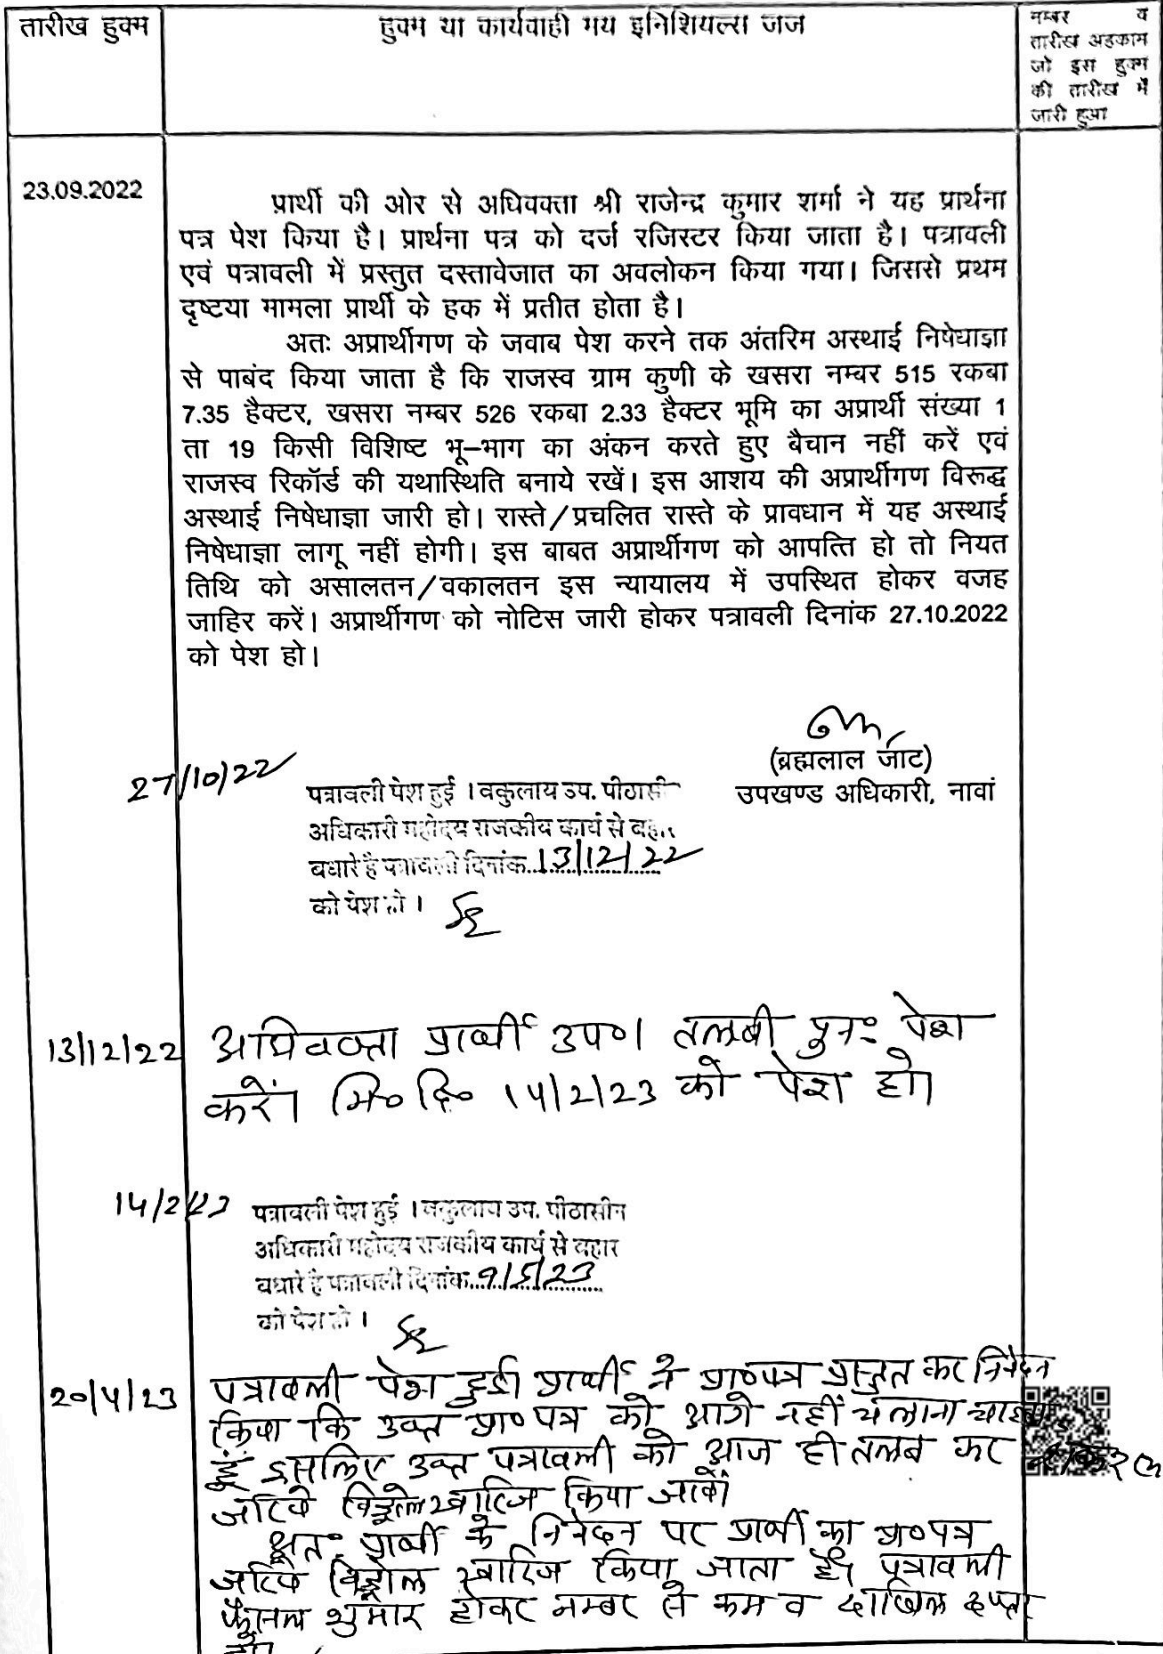 तारीख हुक्म
हुक्म या कार्यवाही मय इनिशियल्स जज
नम्बर व
तारीख अहकाम
जो इस हुक्म
की तारीख में
जारी हुआ
23.09.2022
प्रार्थी की ओर से अधिवक्ता श्री राजेन्द्र कुमार शर्मा ने यह प्रार्थना
पत्र पेश किया है। प्रार्थना पत्र को दर्ज रजिस्टर किया जाता है। पत्रावली
एवं पत्रावली में प्रस्तुत दस्तावेजात का अवलोकन किया गया। जिससे प्रथम
दृष्टया मामला प्रार्थी के हक में प्रतीत होता है।
अतः अप्रार्थीगण के जवाब पेश करने तक अंतरिम अस्थाई निषेधाज्ञा
से पाबंद किया जाता है कि राजस्व ग्राम कुणी के खसरा नम्बर 515 रकबा
7.35 हैक्टर, खसरा नम्बर 526 रकबा 2.33 हैक्टर भूमि का अप्रार्थी संख्या 1
ता 19 किसी विशिष्ट भू-भाग का अंकन करते हुए बैचान नहीं करें एवं
राजस्व रिकॉर्ड की यथास्थिति बनाये रखें। इस आशय की अप्रार्थीगण विरूद्ध
अस्थाई निषेधाज्ञा जारी हो। रास्ते/प्रचलित रास्ते के प्रावधान में यह अस्थाई
निषेधाज्ञा लागू नहीं होगी। इस बाबत अप्रार्थीगण को आपत्ति हो तो नियत
तिथि को असालतन/वकालतन इस न्यायालय में उपस्थित होकर वजह
जाहिर करें। अप्रार्थीगण को नोटिस जारी होकर पत्रावली दिनांक 27.10.2022
को पेश हो।
(ब्रह्मलाल जाट)
उपखण्ड अधिकारी, नावां
27/10/22
पत्रावली पेश हुई । वकुलाय उप. पीठासी
अधिकारी महोदय राजकीय कार्य से बहार
बधारे है पत्रावली दिनांक 13/12/22
को पेश हो ।
13/12/22
अधिवक्ता प्रार्थी उप०। तलबी पुनः पेश
करें। मि० दि० 14/2/23 को पेश हो।
14/2/23
पत्रावली पेश हुई । वकुलाय उप. पीठासीन
अधिकारी महोदय राजकीय कार्य से बहार
बधारे है पत्रावली दिनांक 9/5/23
को पेश हो ।
20/4/23
पत्रावली पेश हुई। प्रार्थी ने प्रा०पत्र प्रस्तुत कर निवेदन
किया कि उक्त प्रा० पत्र को आगे नहीं चलाना
हूं इसलिए उक्त पत्रावली को आज ही तलब कर
जरिये विड्रोल खारिज किया जावें।
अतः प्रार्थी के निवेदन पर प्रार्थी का प्रा०पत्र
जरिये विड्रोल खारिज किया जाता है। पत्रावली
फैसल शुमार होकर नम्बर से कम व दाखिल दफ्तर
हो।